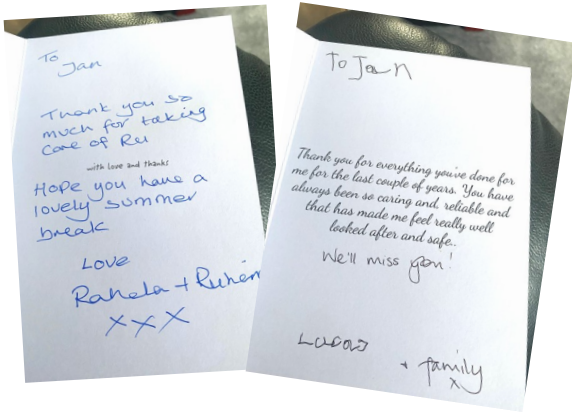 To
Jan
Thank you so
much for taking
care of Ru
with love and thanks
Hope you have a
lovely summer
break
Love
Rahela + Ruhém
XXX
To Jan
Thank you for everything you've done for
me for the last couple of years. You have
always been so caring and, reliable and
that has made me feel really well
looked after and safe..
We'll miss you!
Lucas
+ family
x